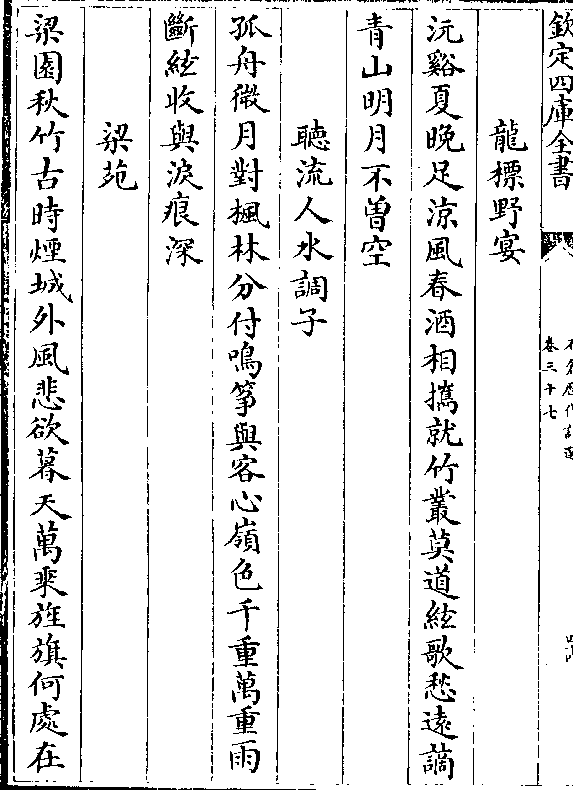 欽定四庫全書
卷三十七
龍標野宴
沅谿夏晚足涼風春酒相攜就竹叢莫道絃歌愁遠謫
青山明月不曾空
聽流人水調子
孤舟微月對楓林分付鳴箏與客心嶺色千重萬重雨
斷絃收與淚痕深
梁苑
梁園秋竹古時煙城外風悲欲暮天萬乘旌旗何處在